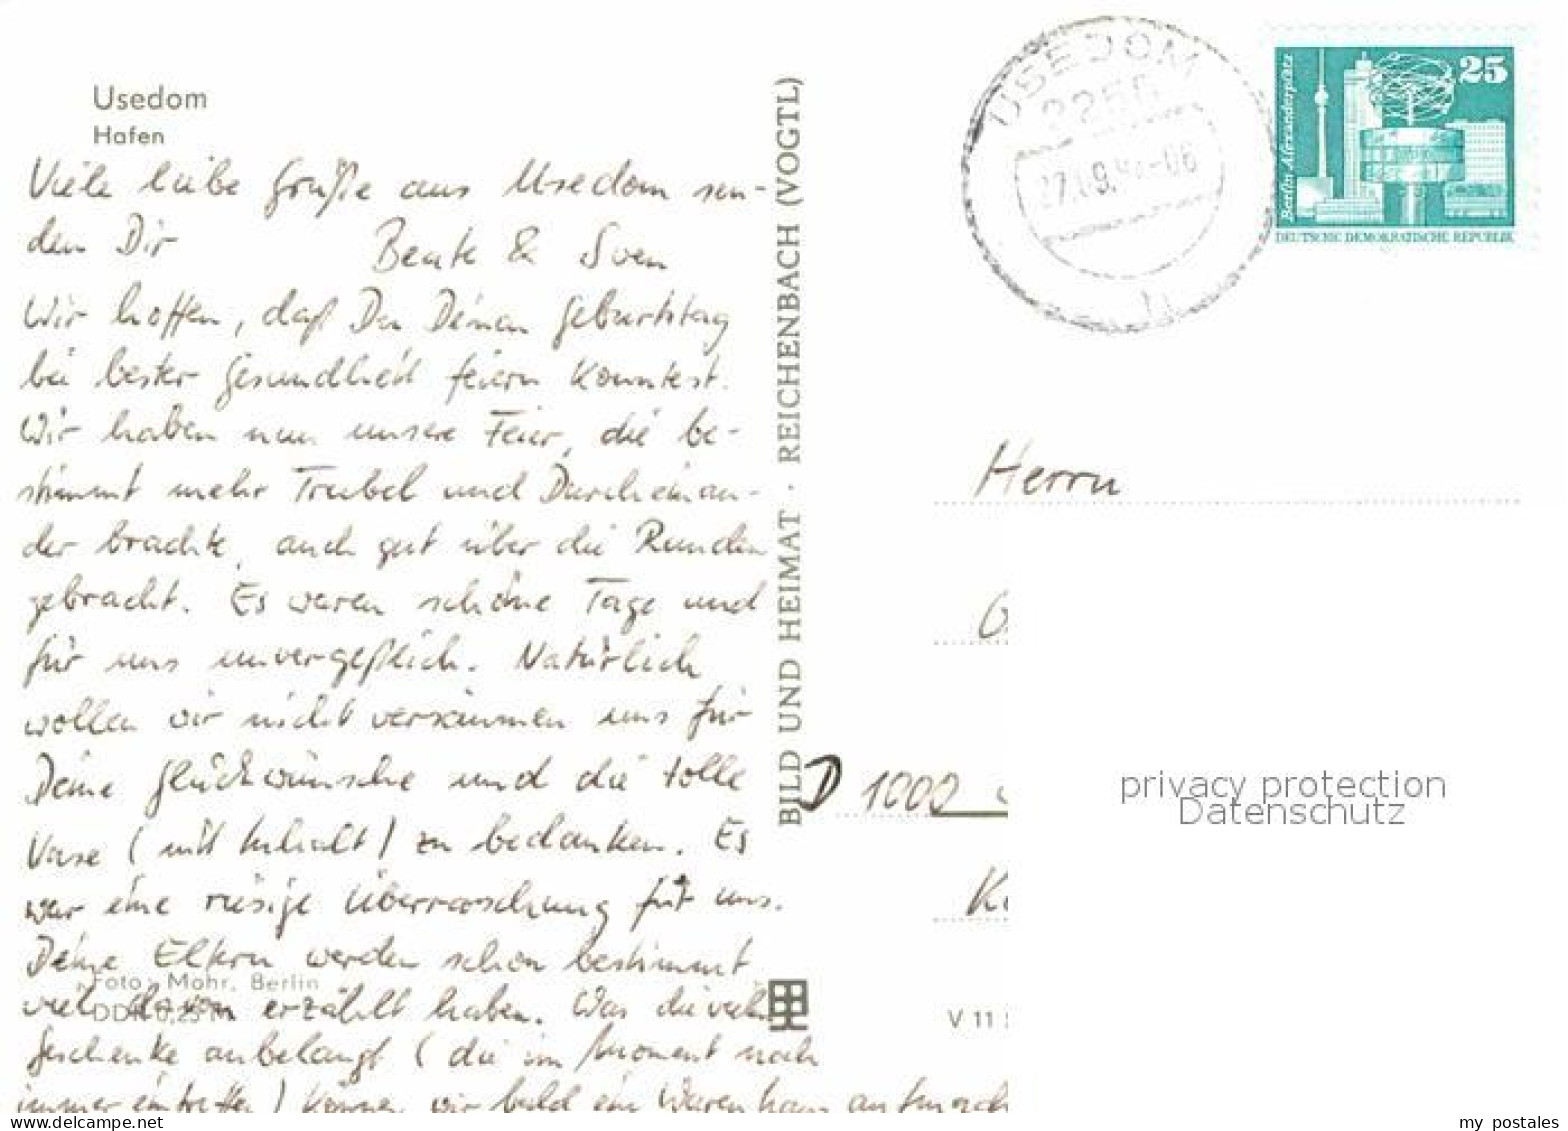 Usedom
Hafen
Viele liebe Grüße aus Usedom sen-
den Dir Beate & Sven
Wir hoffen, daß Du Deinen Geburtstag
bei bester Gesundheit feiern konntest.
Wir haben nun unsere Feier, die be-
stimmt mehr Trubel und Durcheinan-
der brachte, auch gut über die Runden
gebracht. Es waren schöne Tage und
für uns unvergeßlich. Natürlich
wollen wir nicht versäumen uns für
Deine Glückwünsche und die tolle
Vase (mit Inhalt) zu bedanken. Es
war eine riesige Überraschung für uns.
Deine Eltern werden schon bestimmt
viel davon erzählt haben. Was die viel
Geschenke anbelangt (die im Moment noch
immer eintreffen) können wir bald ein Warenhaus aufmach
Foto: Mohr, Berlin
DDR 0,25 M
BILD UND HEIMAT · REICHENBACH (VOGTL)
V 11
USEDOM
2256
27.09.
-06
h
25
Berlin Alexanderplatz
DEUTSCHE DEMOKRATISCHE REPUBLIK
Herrn
D 1000
privacy protection
Datenschutz
www.delcampe.net
my_postales